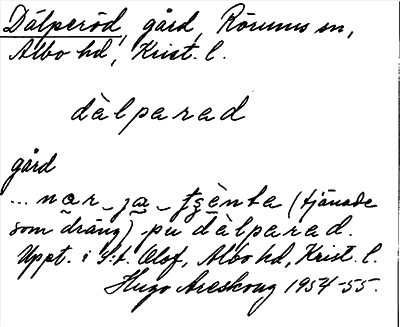 Dálperöd, gård, Rörums sn,
Albo hd, Krist. l.
dàlparad
gård
... nar ja tjènta (tjänade
som dräng) pu dàlparad.
Uppt. i S:t. Olof, Albo hd, Krist. l.
Hugo Areskoug 1954-55.